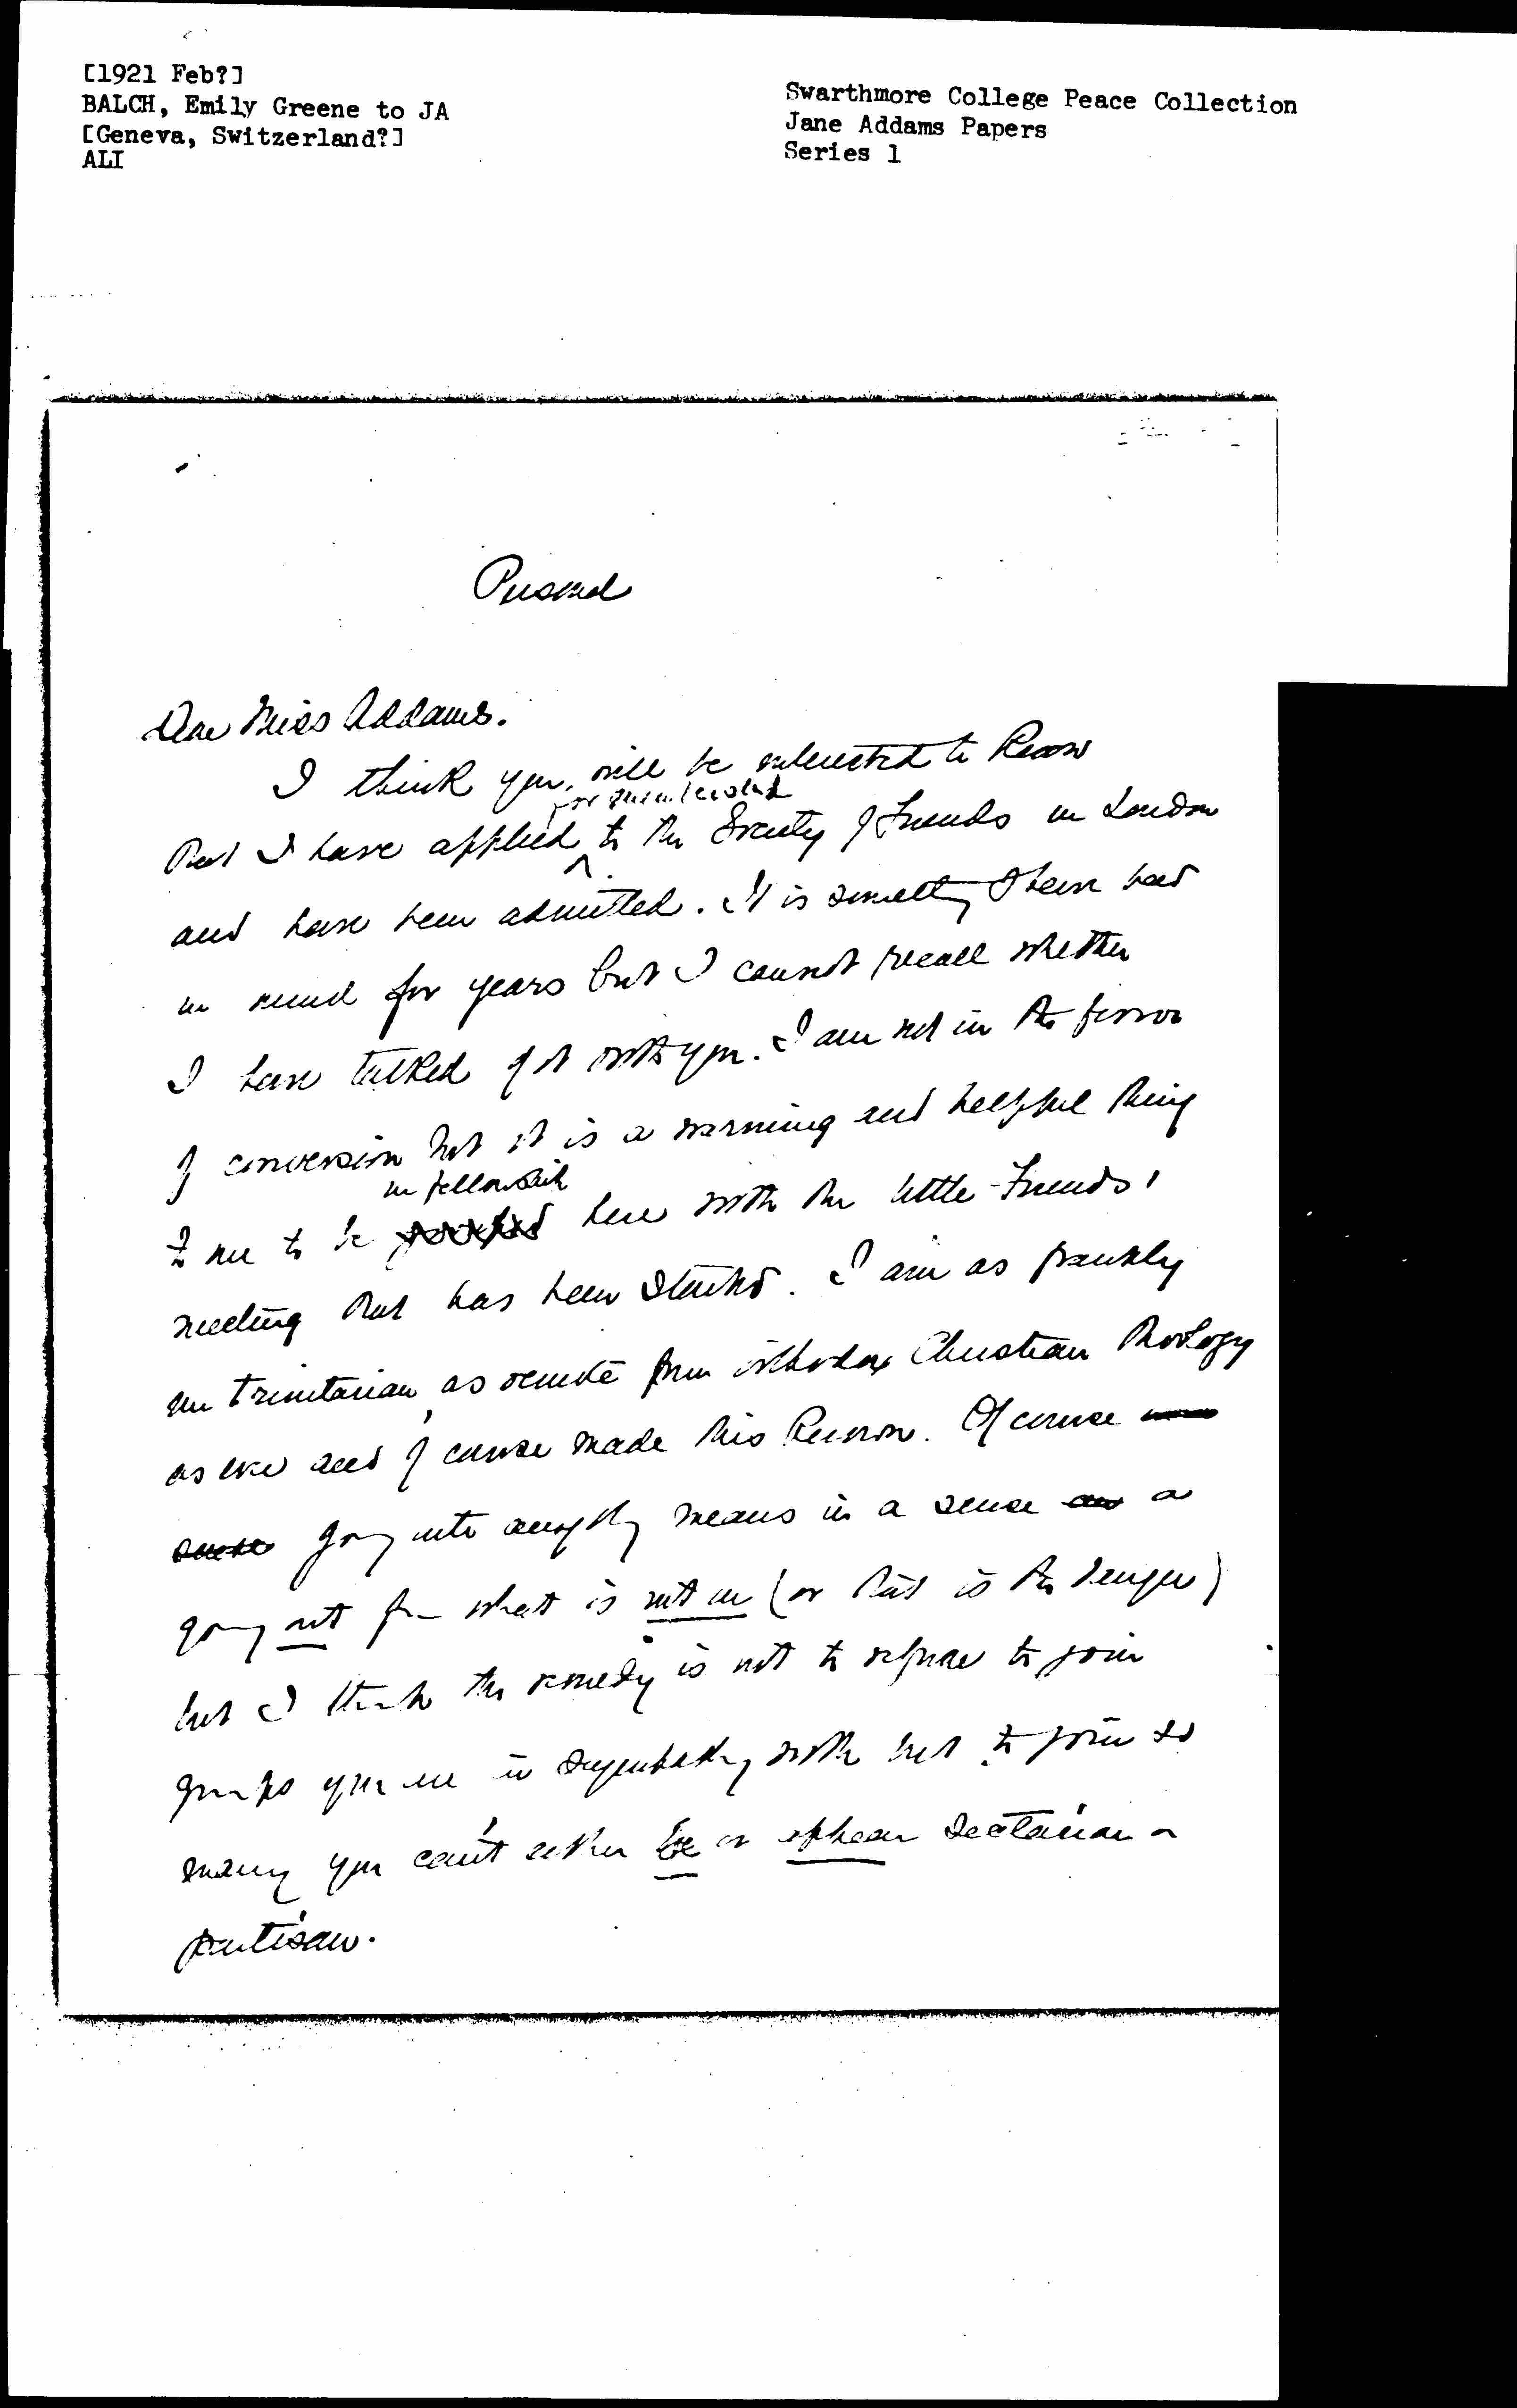 [1921 Feb?]
BALCH, Emily Greene to JA
[Geneva, Switzerland?]
ALI
Swarthmore College Peace Collection
Jane Addams Papers
Series 1
Personal
Dear Miss Addams.
I think you will be interested to know
for membership
that I have applied ^ to the Society of Friends in London
and have been admitted. It is something I have had
in mind for years but I cannot recall whether
I have talked of it with you. I am not in the fervor
of conversion but it is a warming and helpful thing
in fellowship
to me to be here with the little Friends'
meeting that has been started. I am as frankly
un trinitarian, as remote from orthodox Christian theology
as ever and of course made this known. Of course
going into anything means in a sense a
going out from what is not in (or that is the danger)
but I think the remedy is not to refuse to join
groups you are in sympathy with but to join so
many you can't either be or appear sectarian or
partisan.